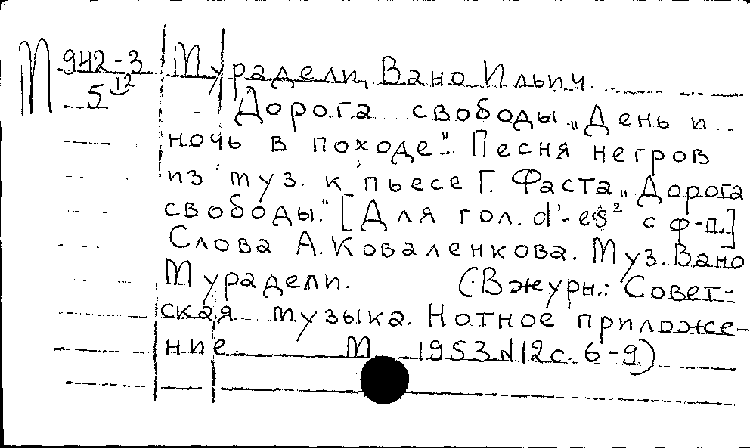 М 942-3 Мурадели, Вано Ильич.
5 12 Дорога свободы. „День и
ночь в походе". Песня негров
из муз. к пьесе Г. Фаста „Дорога
свободы." [Для гол. d'-es² с ф-п.]
Слова А. Коваленкова. Муз. Вано
Мурадели. (В журн.: Совет-
ская музыка. Нотное приложе-
ние М 1953 №12 с. 6-9)